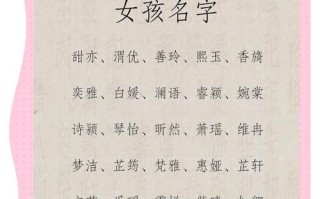 女孩名字
甜亦、渭优、善玲、熙玉、香旖
奕雅、白媛、澜语、睿颖、婉棠
诗颖、琴怡、昕然、萧瑶、维冉
梦洁、芷筠、梵雅、惠娅、芷轩